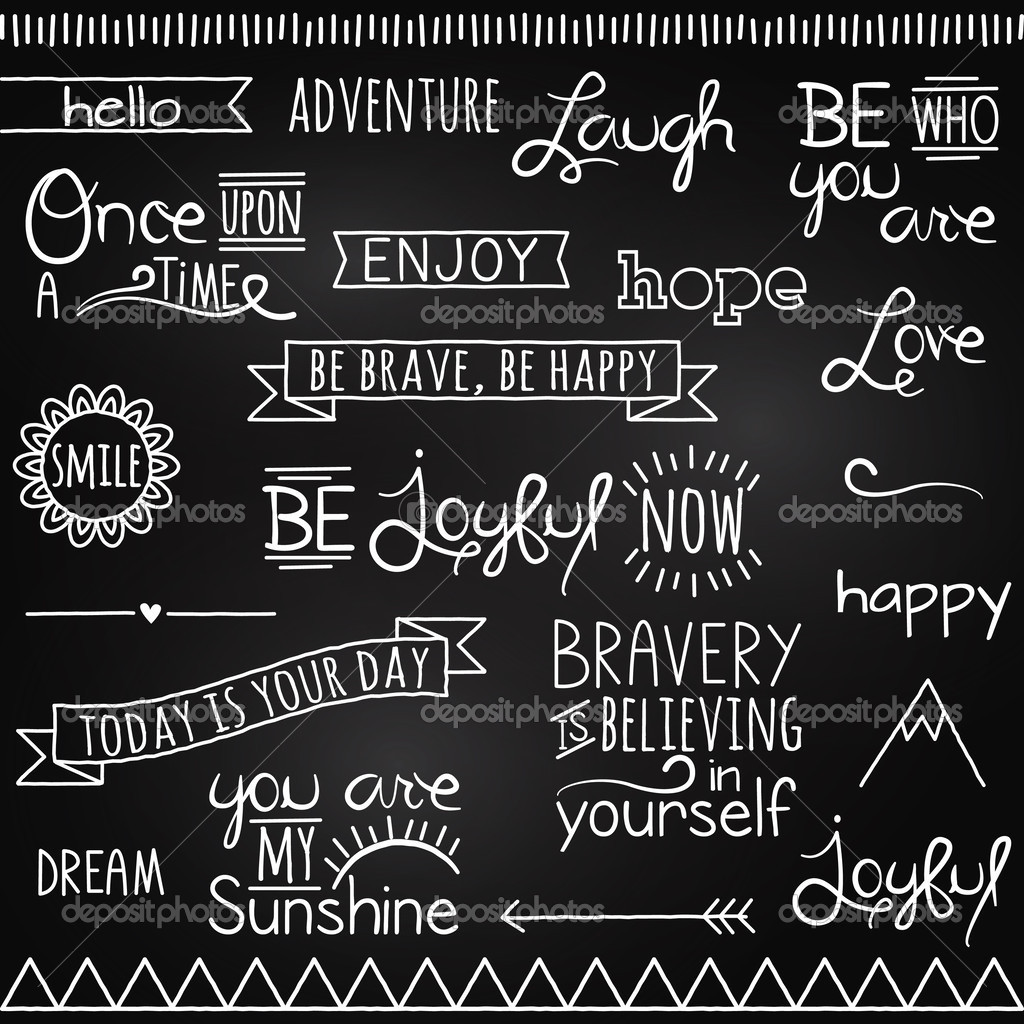 hello
ADVENTURE
Laugh
BE WHO
you
are
Once UPON
A TIME
ENJOY
hope
Love
BE BRAVE, BE HAPPY
SMILE
BE Joyful NOW
happy
TODAY IS YOUR DAY
BRAVERY
IS BELIEVING
in
yourself
you are
MY
Sunshine
DREAM
Joyful
depositphotos depositphotos depositphotos
depositphotos depositphotos depositphotos
depositphotos depositphotos depositphotos
depositphotos depositphotos depositphotos
depositphotos depositphotos depositphotos